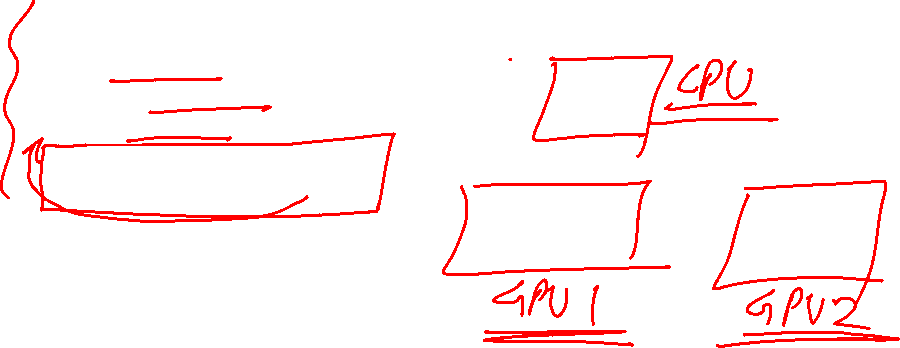 CPU
GPU1
GPU2